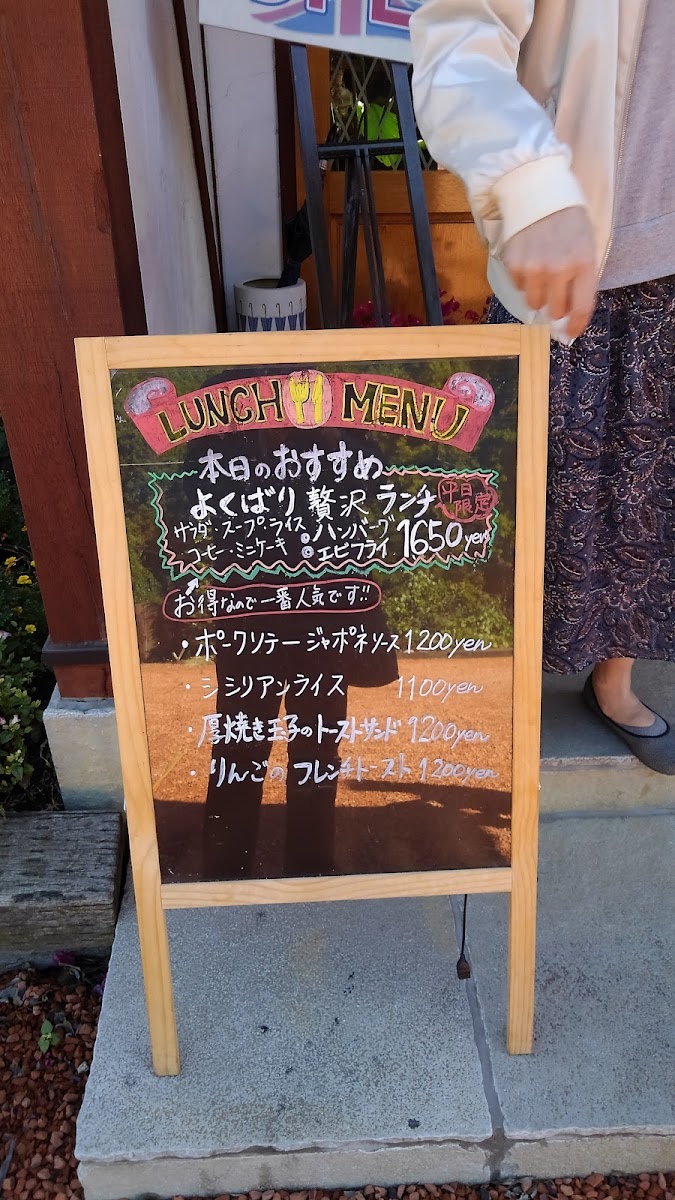 LUNCH MENU
本日のおすすめ
よくばり贅沢ランチ 平日限定
サラダ・スープ・ライス ・ハンバーグ 1650yen
コーヒー・ミニケーキ ・エビフライ
お得なので一番人気です!!
・ポークソテージャポネソース 1200yen
・シシリアンライス 1100yen
・厚焼き玉子のトーストサンド 1200yen
・りんごのフレンチトースト 1200yen